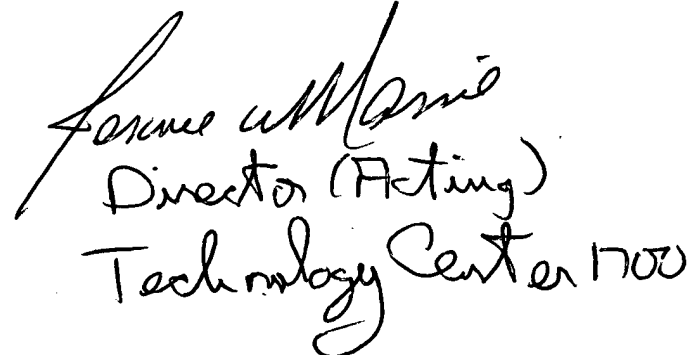 Director (Acting)
Technology Center 1700